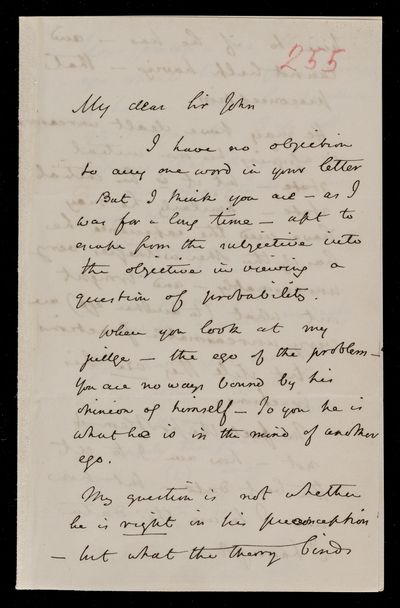 255
My dear Sir John
I have no objection
to any one word in your letter
But I think you are — as I
was for a long time — apt to
escape from the subjective into
the objective in viewing a
question of probability.
When you look at my
judge — the ego of the problem —
you are no ways bound by his
opinion of himself — To you he is
what he is in the mind of another
ego.
My question is not whether
he is right in his preconception
— but what the theory binds